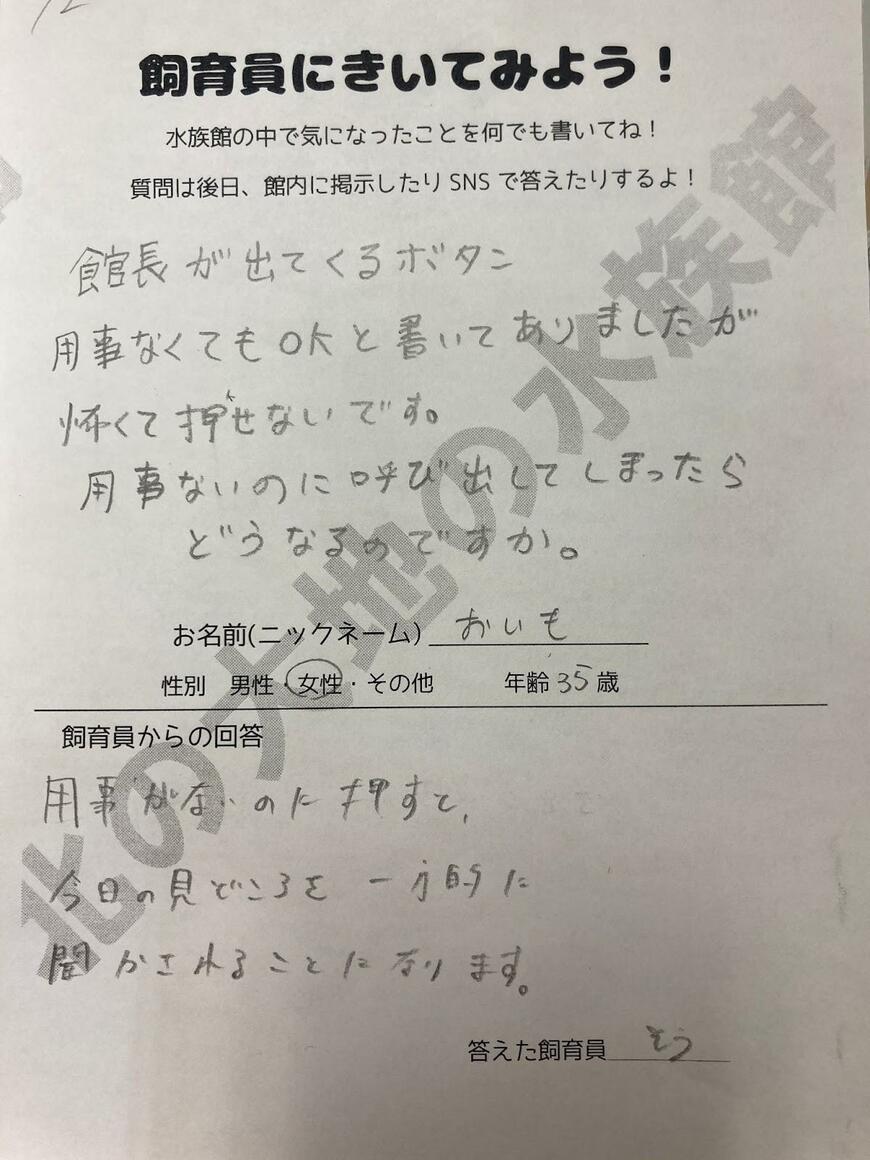 12
飼育員にきいてみよう！
水族館の中で気になったことを何でも書いてね！
質問は後日、館内に掲示したりSNSで答えたりするよ！
館長が出てくるボタン
用事なくてもOKと書いてありましたが
怖くて押せないです。
用事ないのに呼び出してしまったら
どうなるのですか。
お名前(ニックネーム) おいも
性別 男性・女性・その他 年齢 35 歳
飼育員からの回答
用事がないのに押すと、
今日の見どころを一方的に
聞かされることになります。
答えた飼育員 そう
北の大地の水族館